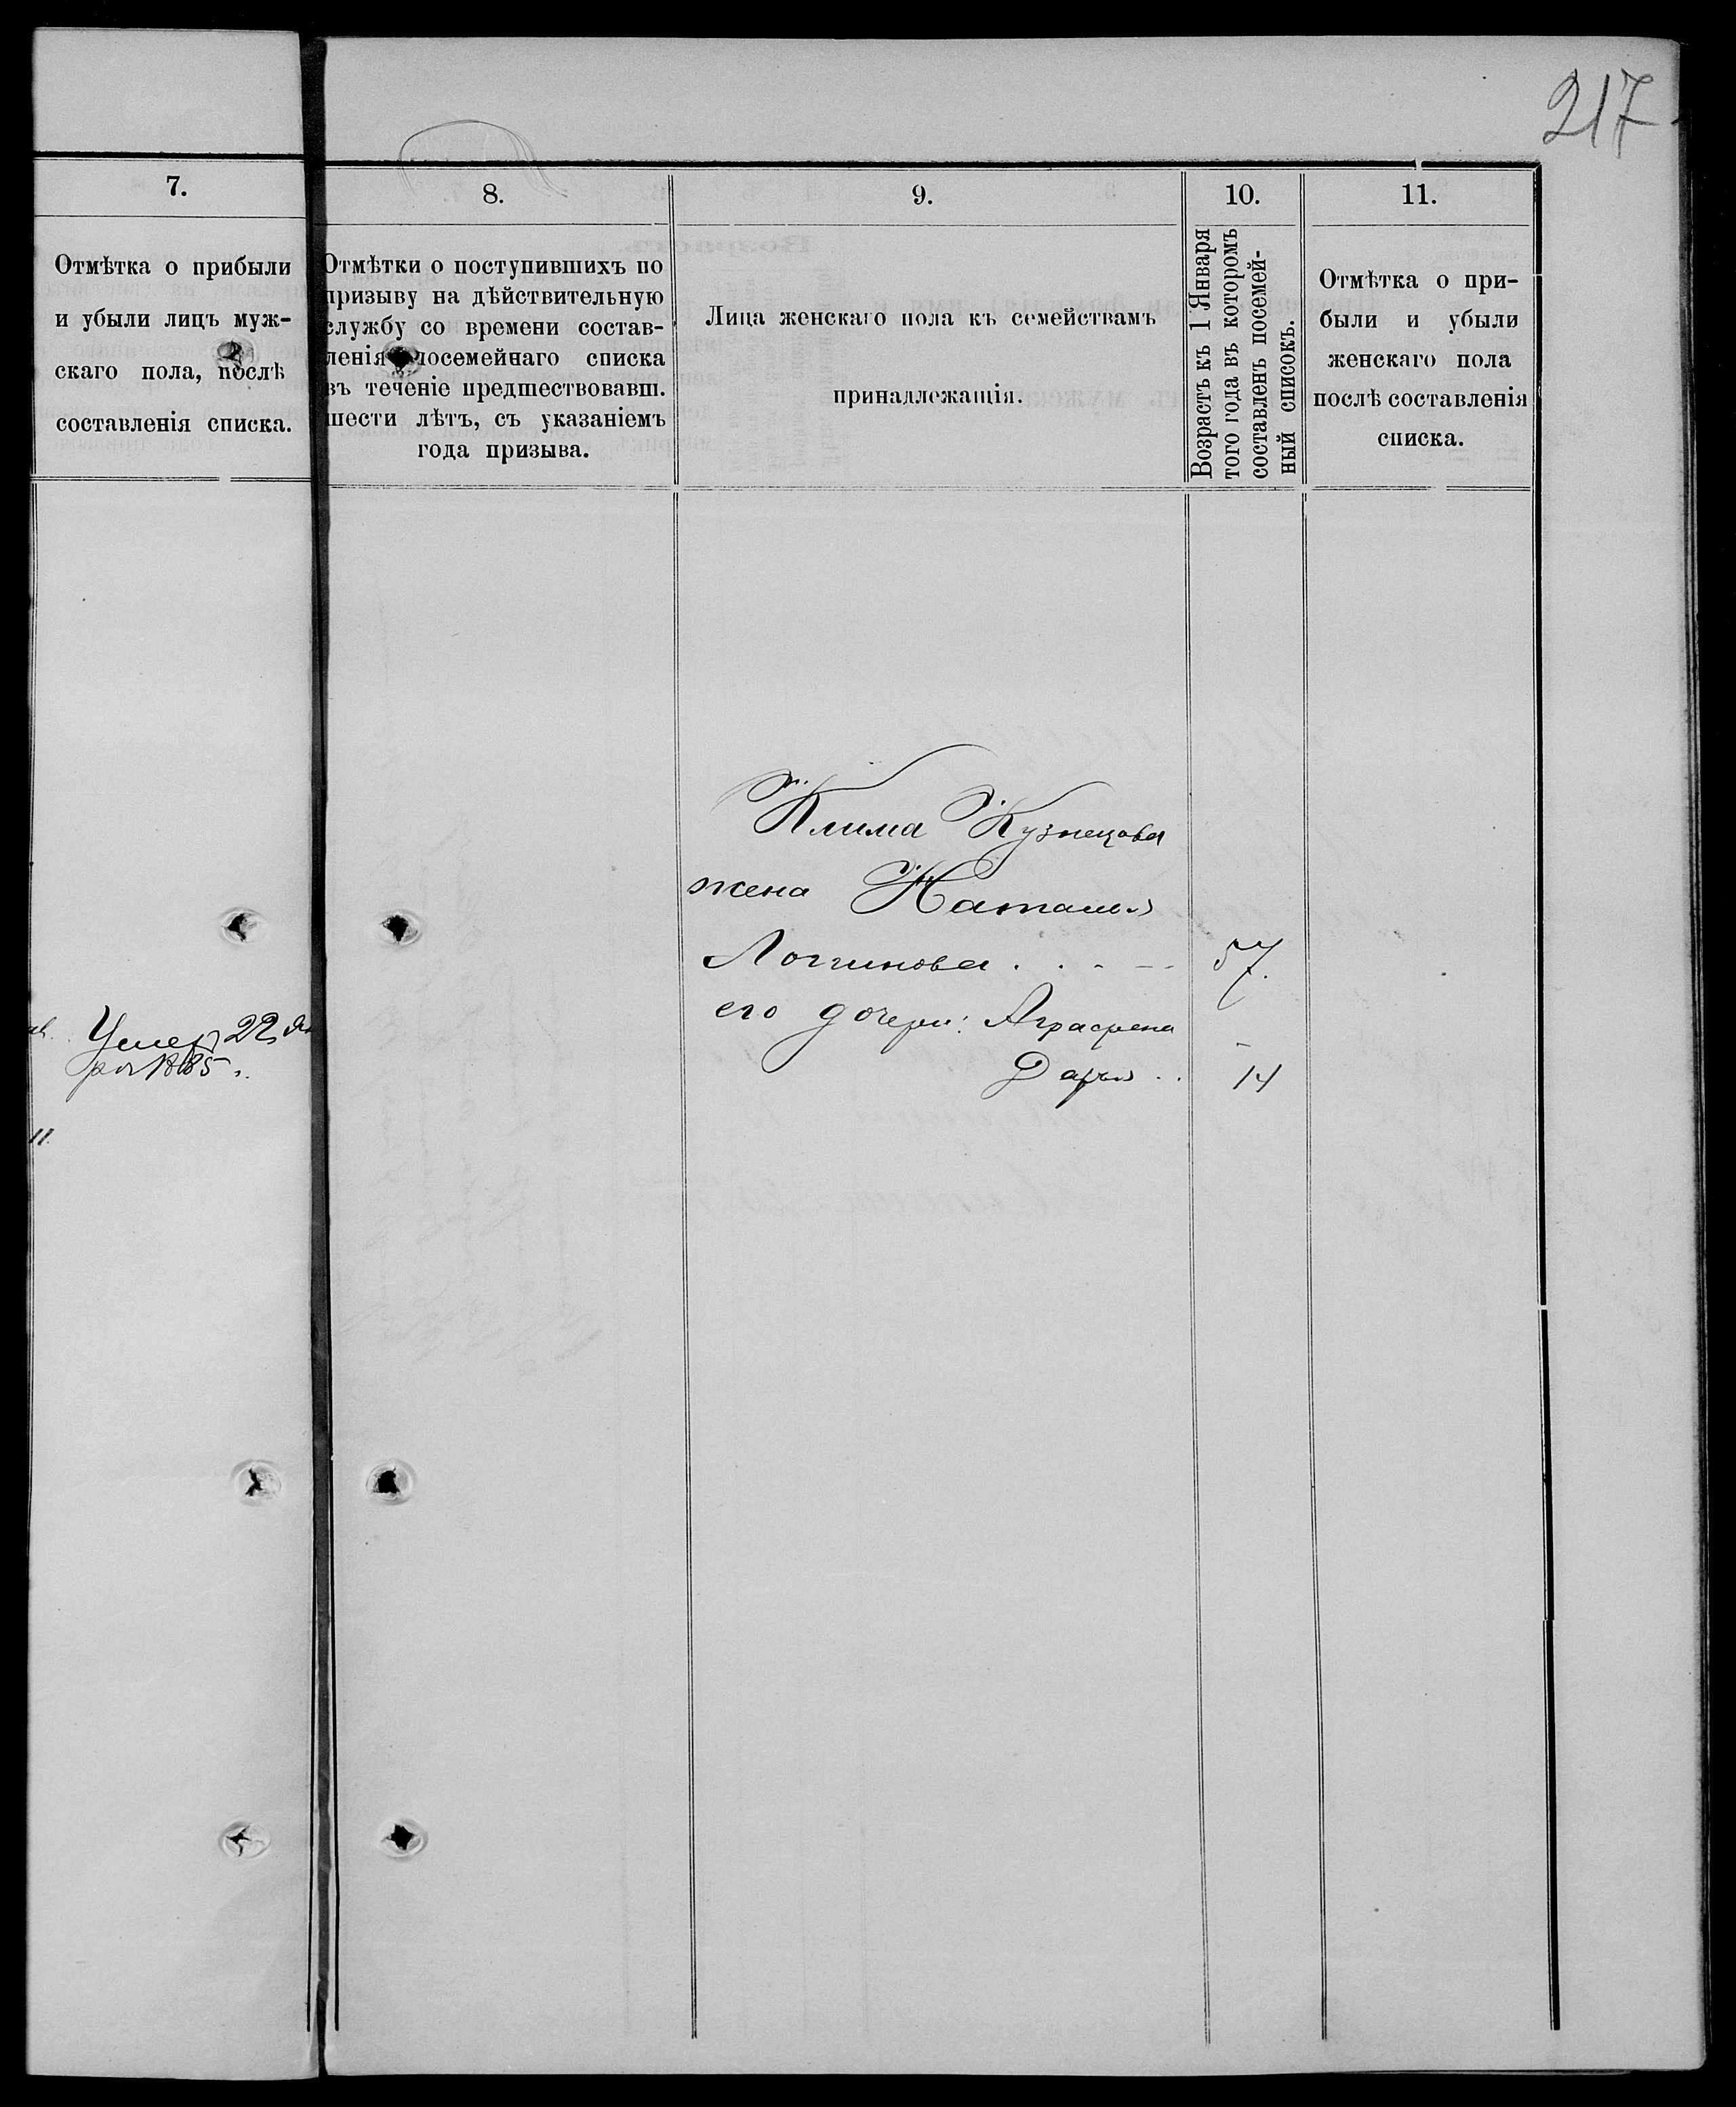 217
7.
Отмѣтка о прибыли
и убыли лицъ муж-
скаго пола, послѣ
составленія списка.
8.
Отмѣтки о поступившихъ по
призыву на дѣйствительную
службу со времени состав-
ленія посемейнаго списка
въ теченіе предшествовавш.
шести лѣтъ, съ указаніемъ
года призыва.
9.
Лица женскаго пола къ семействамъ
принадлежащія.
10.
Возрастъ къ 1 Января
того года въ которомъ
составленъ посемей-
ный списокъ.
11.
Отмѣтка о при-
были и убыли
женскаго пола
послѣ составленія
списка.
Клима Кузнецова
жена Наталья
Логгинова . . - - 57.
его дочери: Аграфена -
Дарья . . 14
Умер 22
1885
11.